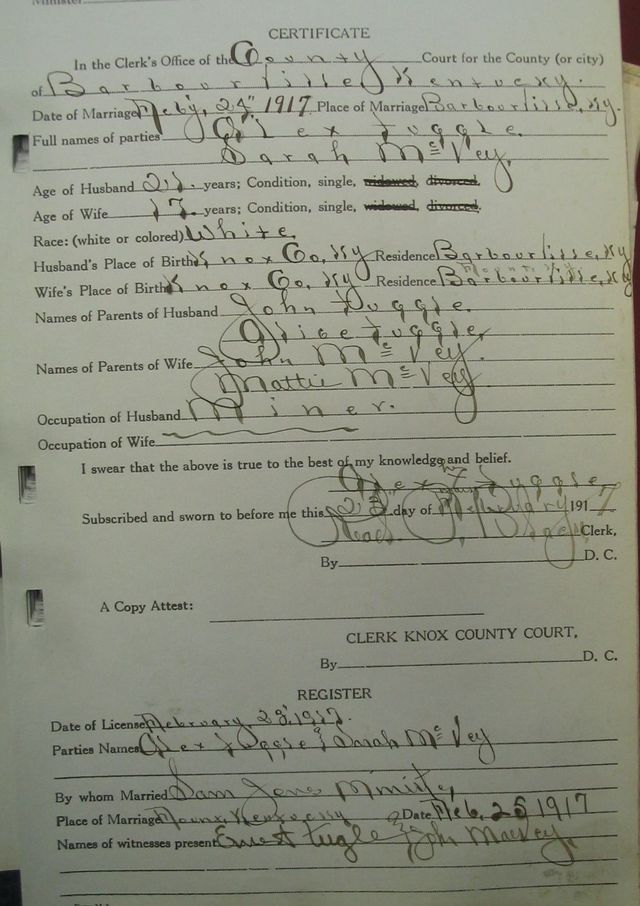 CERTIFICATE
In the Clerk's Office of the County Court for the County (or city)
of Barbourville, Kentucky.
Date of Marriage Feb'y, 24" 1917 Place of Marriage Barbourville, Ky.
Full names of parties Alex Tuggle.
Sarah McVey,
Age of Husband 21. years; Condition, single, widowed, divorced.
Age of Wife 17. years; Condition, single, widowed, divorced.
Race: (white or colored) White.
Husband's Place of Birth Knox Co, Ky Residence Barbourville, Ky
Wife's Place of Birth Knox Co, Ky Residence Barbourville, Ky
Names of Parents of Husband John Tuggle.
Alice Tuggle,
Names of Parents of Wife John McVey.
Mattie McVey
Occupation of Husband Miner.
Occupation of Wife
I swear that the above is true to the best of my knowledge and belief.
Alex Tuggle
Subscribed and sworn to before me this 23 day of February 1917
Clerk,
By D. C.
A Copy Attest:
CLERK KNOX COUNTY COURT,
By D. C.
REGISTER
Date of License February 23, 1917.
Parties Names Alex Tuggle & Sarah McVey
By whom Married Sam Jones
Place of Marriage Date Feb. 25 1917
Names of witnesses present Ernest Tugle & John